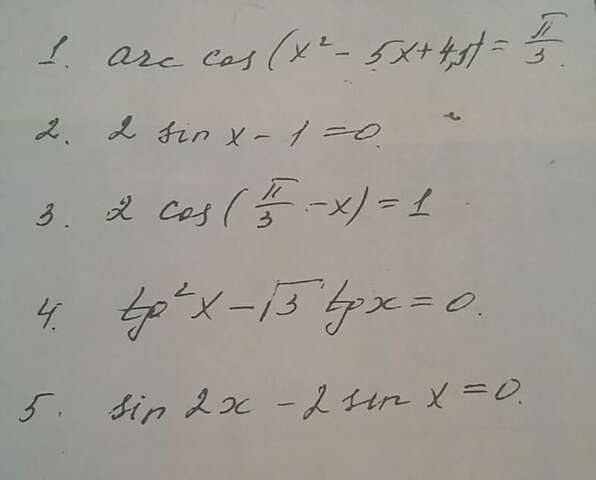 1. arc cos (x² - 5x + 4,5) = π/3.
2. 2 sin x - 1 = 0.
3. 2 cos (π/3 - x) = 1
4. tg²x - √3 tgx = 0.
5. sin 2x - 2 sin x = 0.